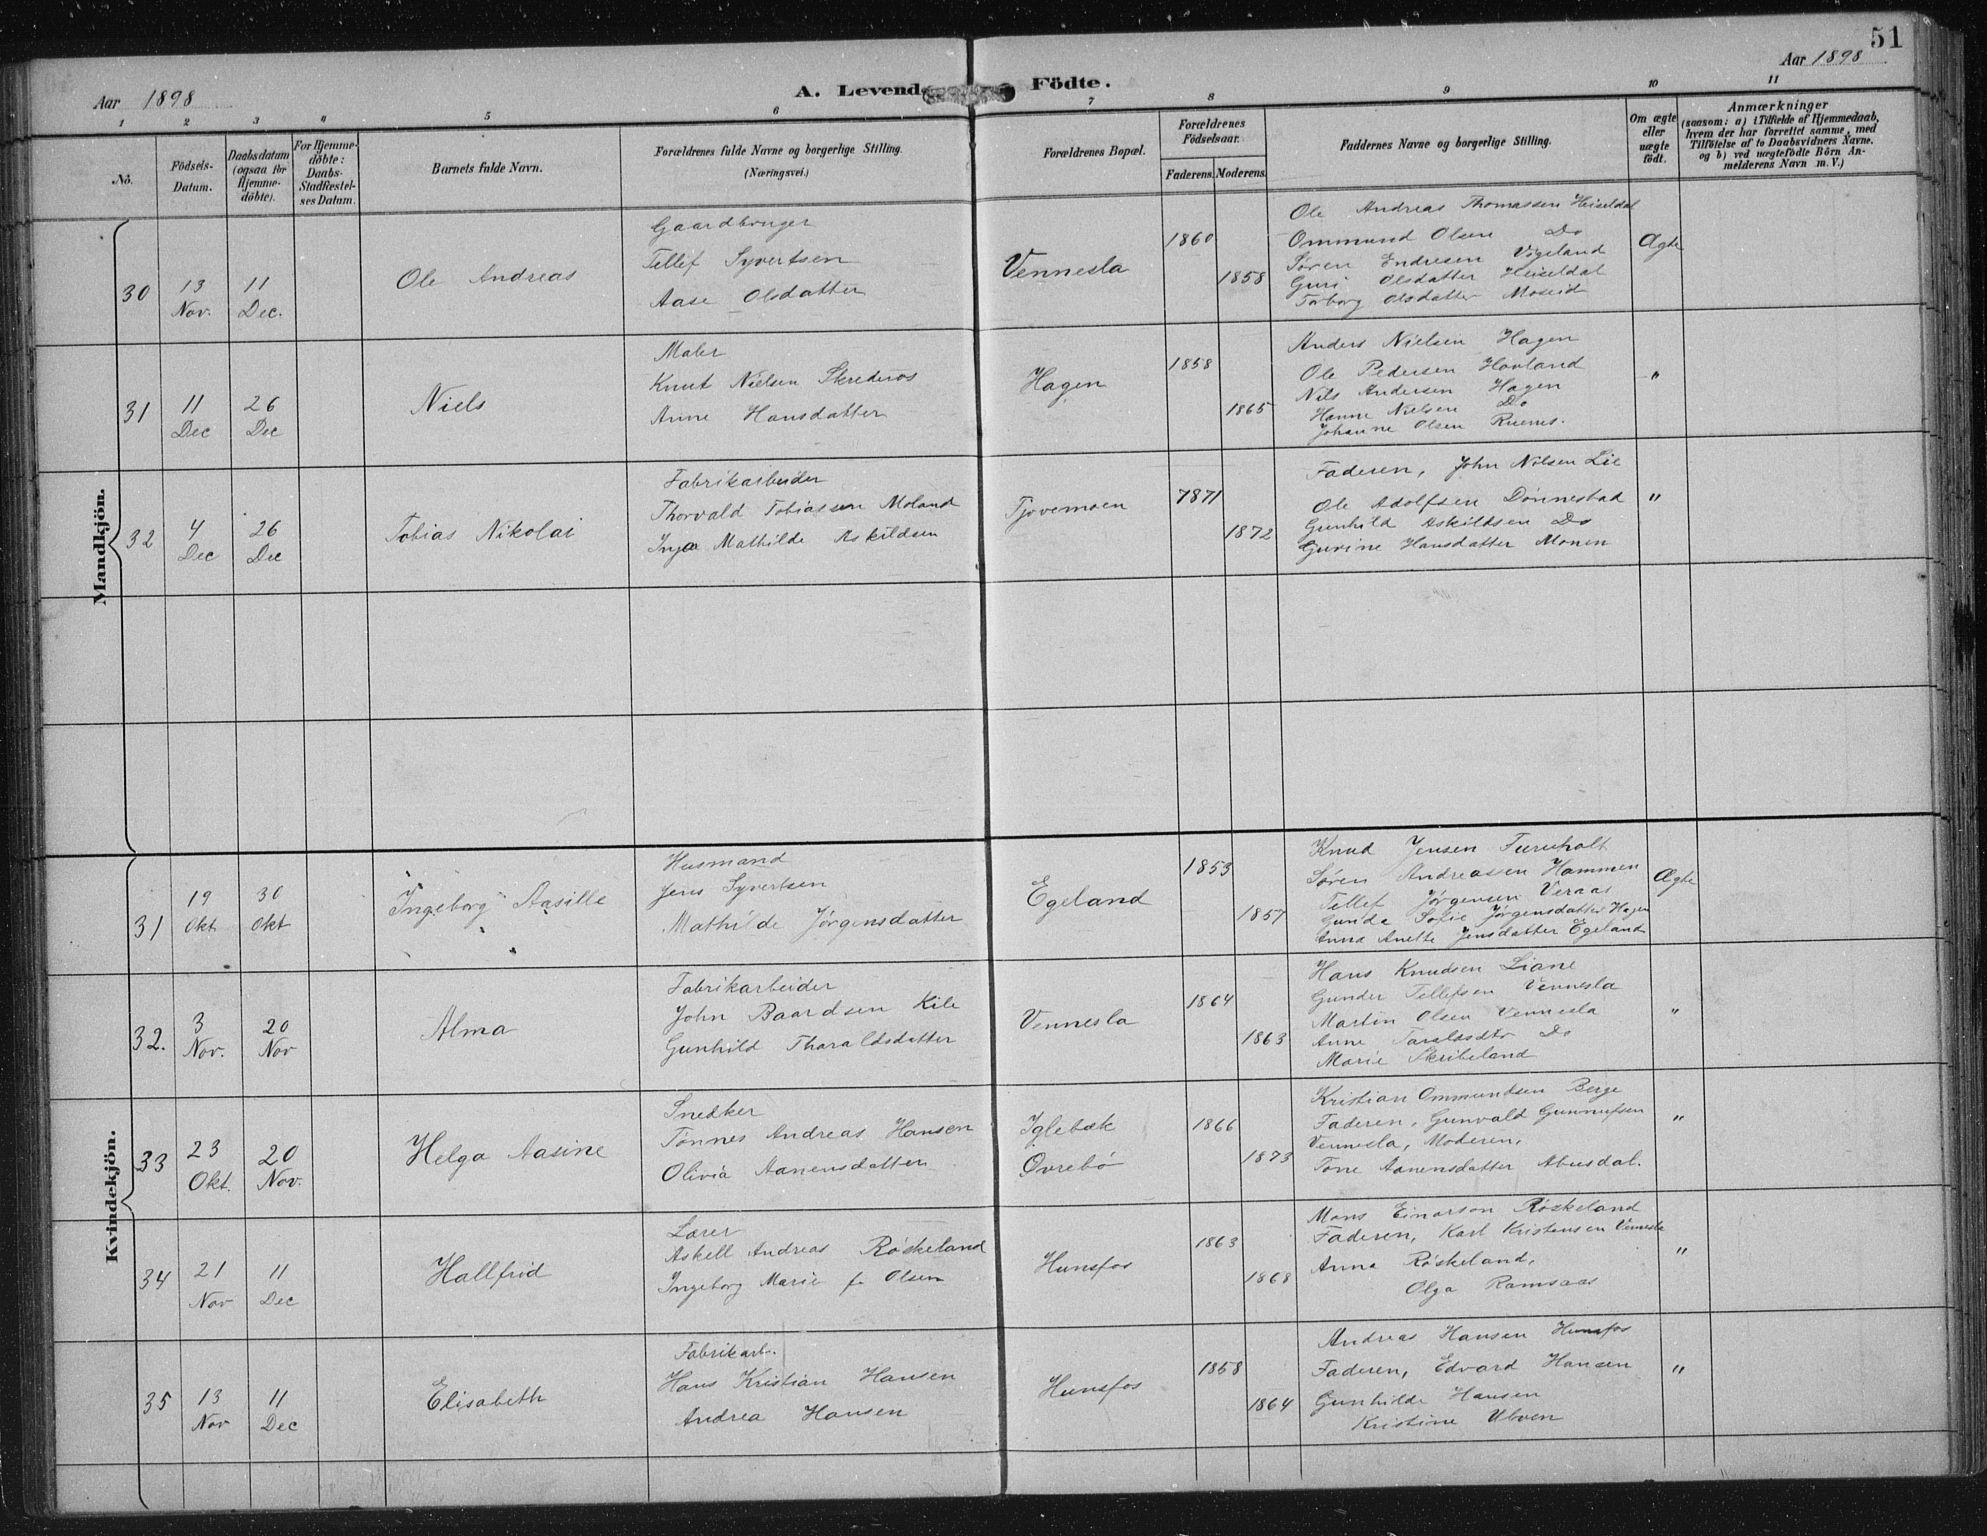 51
Aar 1898
Aar 1898
A. Levende Födte.
1 2 3 4 5 6 7 8 9 10 11
No.
Födsels-Datum.
Daabsdatum (ogsaa för Hjemme-döbte).
For Hjemme-döbte: Daabs-Stadfæstel-ses Datum.
Barnets fulde Navn.
Forældrenes fulde Navne og borgerlige Stilling.
(Næringsvei.)
Forældrenes Bopæl.
Forældrenes Födselsaar.
Faderens. Moderens.
Faddernes Navne og borgerlige Stilling.
Om ægte eller uægte födt.
Anmærkninger
(saasom: a) i Tilfælde af Hjemmedaab,
hvem der har forrettet samme, med
Tilföielse af to Daabsvidners Navne.
og b) ved uægtefödte Börn An-
melderens Navn m. V.)
Mandkjön.
30
13 Nov.
11 Dec.
Ole Andreas
Gaardbruger
Tellef Syvertsen
Aase Olsdatter
Vennesla
1860
1858
Ole Andreas Thomassen Heiseldal
Ommund Olsen Do
Søren Endresen Vigeland
Guri Olsdatter Heiseldal
Torborg Olsdatter Moseid
Ægte
31
11 Dec
26 Dec
Niels
Maler
Knut Nielsen Skrederos
Anne Hansdatter
Hagen
1858
1865
Anders Nielsen Hagen
Ole Pedersen Hovland
Nils Andersen Hagen
Hanne Nielsen Do
Johanne Olsen Ruenes.
"
32
4 Dec
26 Dec
Tobias Nikolai
Fabrikarbeider
Thorvald Tobiassen Moland
Inga Mathilde Askildsen
Tjovemoen
1871
1872
Faderen, John Nilsen Lie
Ole Adolfsen Dønnestad
Gunhild Askildsen Do
Gurine Hansdatter Monen
"
Kvindekjön.
31
19 Okt
30 Okt
Ingeborg Aasille
Husmand
Jens Syvertsen
Mathilde Jørgensdatter
Egeland
1853
1857
Knud Jensen Furuholt
Søren Andreassen Hammen
Tellef Jørgensen Veraas
Gunda Sofie Jørgensdatter Hagen
Anna Anette Jensdatter Egeland
Ægte
32.
3 Nov.
20 Nov
Alma
Fabrikarbeider
John Baardsen Kile
Gunhild Tharaldsdatter
Vennesla
1864
1863
Hans Knudsen Liane
Gunder Tellefsen Vennesla
Martin Olsen Vennesla
Anne Taraldsdtr Do
Marie Skribeland
"
33
23 Okt.
20 Nov.
Helga Aasine
Snedker
Tønnes Andreas Hansen
Olivia Aanensdatter
Iglebæk
Øvrebø
1866
1873
Kristian Ommundsen Berge
Faderen, Gunvald Gunnufsen
Vennesla, Moderen,
Tone Aanensdatter Abusdal.
"
34
21 Nov
11 Dec
Hallfrid
Lærer
Askell Andreas Røskeland
Ingeborg Marie f. Olsen
Hunsfos
1863
1868
Mons Einarson Røskeland
Faderen, Karl Kristensen Vennesla
Anna Røskeland,
Olga Ramsaas
"
35
13 Nov
11 Dec
Elisabeth
Fabrikarb.
Hans Kristian Hansen
Andrea Hansen
Hunsfos
1858
1864
Andreas Hansen Hunsfos
Faderen, Edvard Hansen
Gunhilde Hansen
Kristine
"